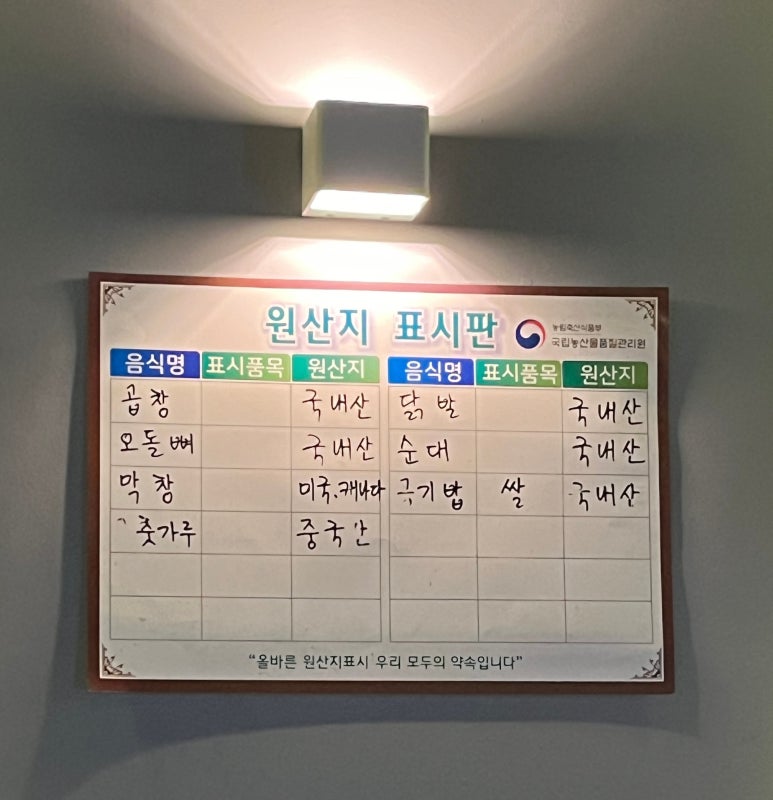 원산지 표시판
농림축산식품부
국립농산물품질관리원
음식명 표시품목 원산지 음식명 표시품목 원산지
곱창 국내산 닭발 국내산
오돌뼈 국내산 순대 국내산
막창 미국.캐나다 쌀 국내산
춧가루 중국
"올바른 원산지표시 우리 모두의 약속입니다"